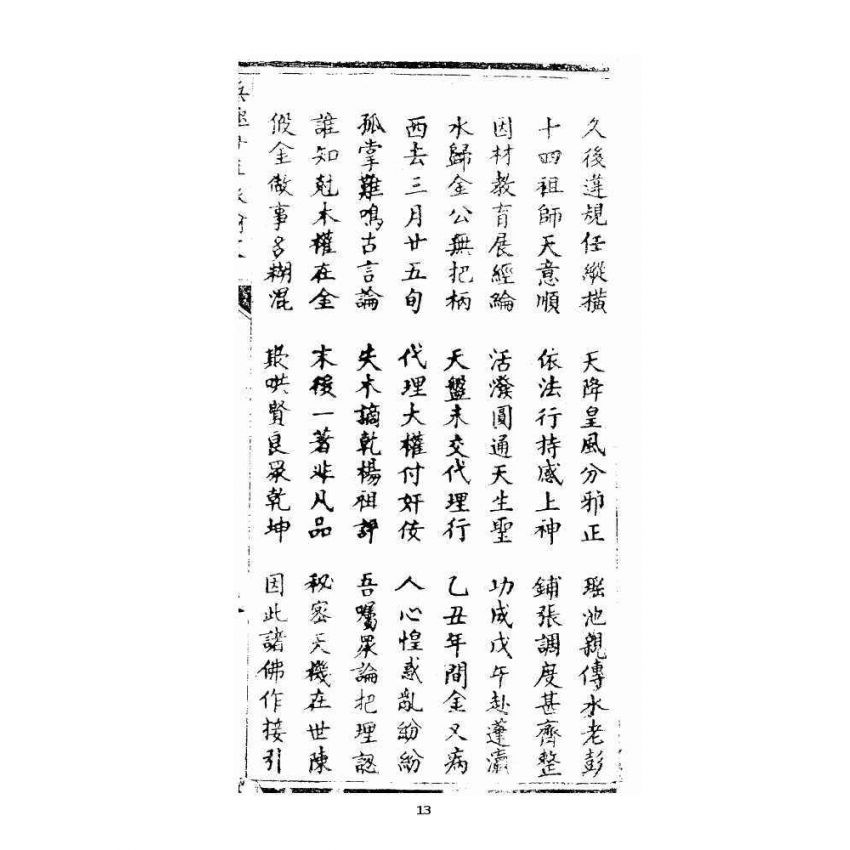 久後違規任縱橫 天降皇風分邪正 瑶池親傳水老彭
十四祖師天意順 依法行持感上神 鋪張調度甚齊整
因材教育展經綸 活潑圓通天生聖 功成戊午赴蓬瀛
水歸金公無把柄 天盤未交代理行 乙丑年間金又病
西去三月廿五旬 代理大權付奸佞 人心惶惑亂紛紛
孤掌難鳴古言論 失木謫乾楊祖評 吾囑眾論把理認
誰知尅木權在金 末後一著非凡品 秘密天機在世陳
假金做事多糊混 哄賢良眾乾坤 因此諸佛作接引
13